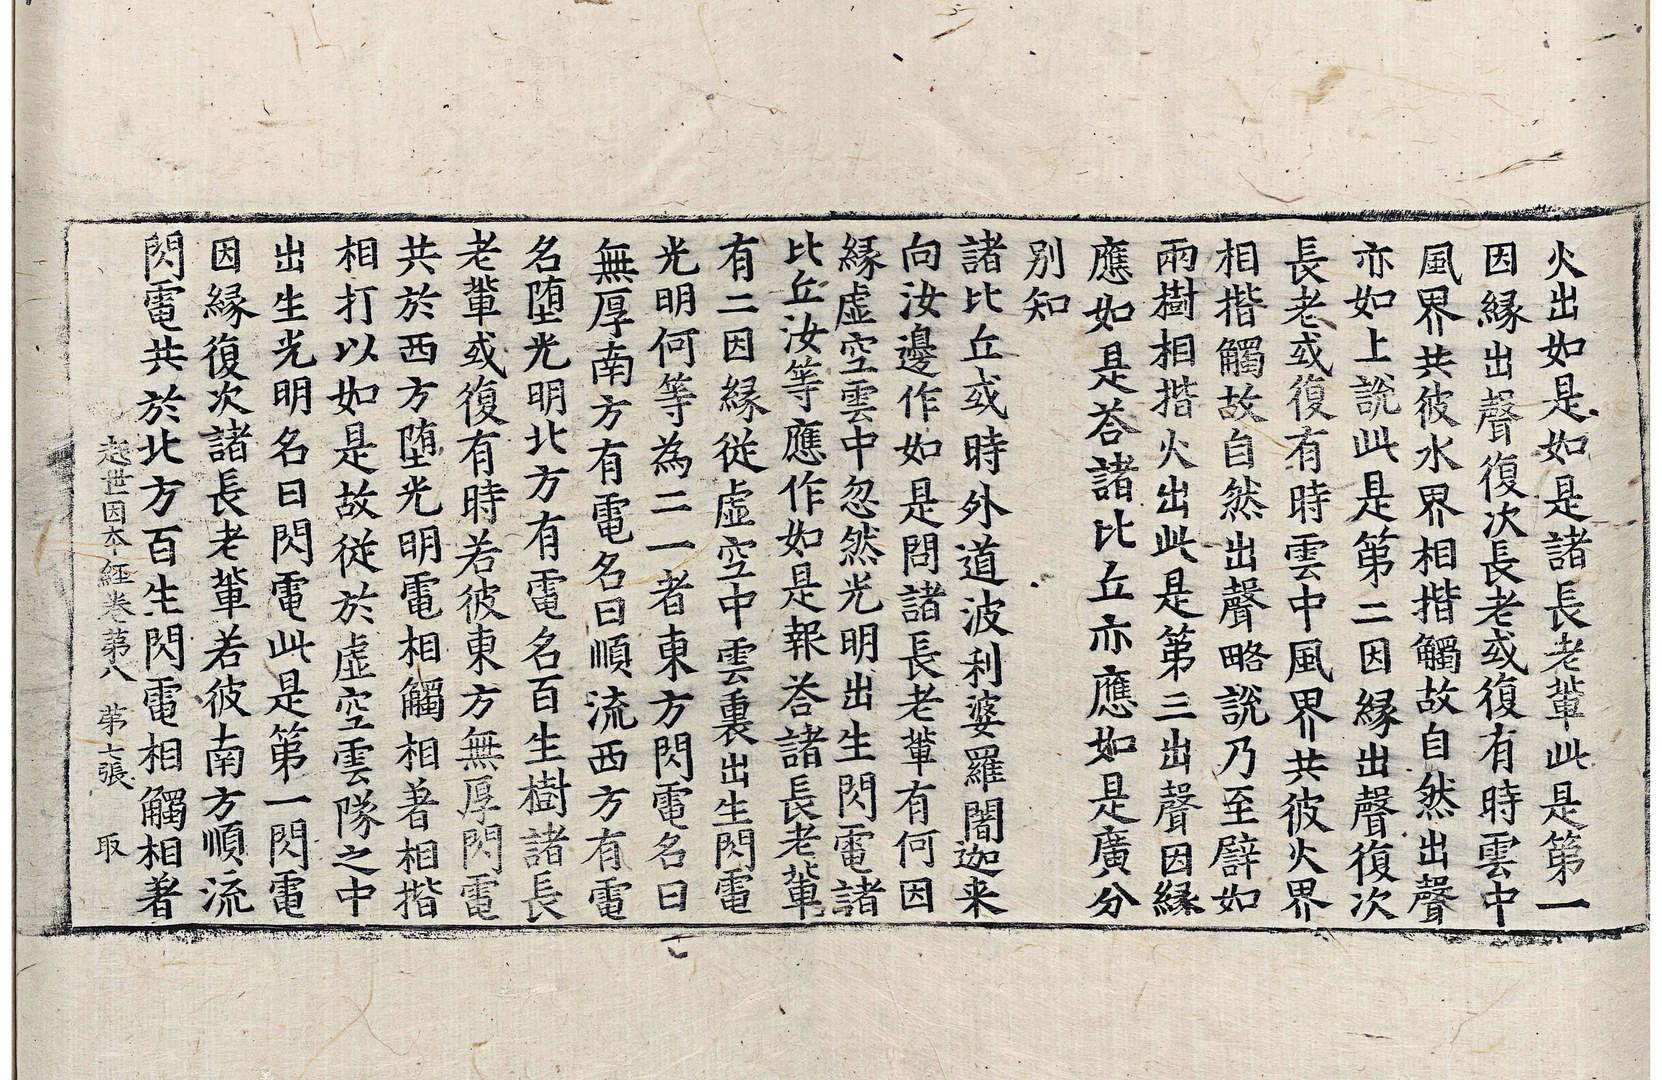 火出如是如是諸長老軰此是第一
因縁出聲復次長老或復有時雲中
風界共彼水界相揩觸故自然出聲
亦如上說此是第二因縁出聲復次
長老或復有時雲中風界共彼火界
相揩觸故自然出聲略說乃至譬如
兩樹相揩火出此是第三出聲因縁
應如是荅諸比丘亦應如是廣分
別知
諸比丘或時外道波利婆羅闍迦来
向汝邊作如是問諸長老軰有何因
縁虛空雲中忽然光明出生閃電諸
比丘汝等應作如是報荅諸長老軰
有二因縁從虛空中雲裏出生閃電
光明何等為二一者東方閃電名曰
無厚南方有電名曰順流西方有電
名堕光明北方有電名百生樹諸長
老軰或復有時若彼東方無厚閃電
共於西方堕光明電相觸相著相揩
相打以如是故從於虛空雲隊之中
出生光明名曰閃電此是第一閃電
因縁復次諸長老軰若彼南方順流
閃電共於北方百生閃電相觸相著
起世因本経卷第八　第七張　取